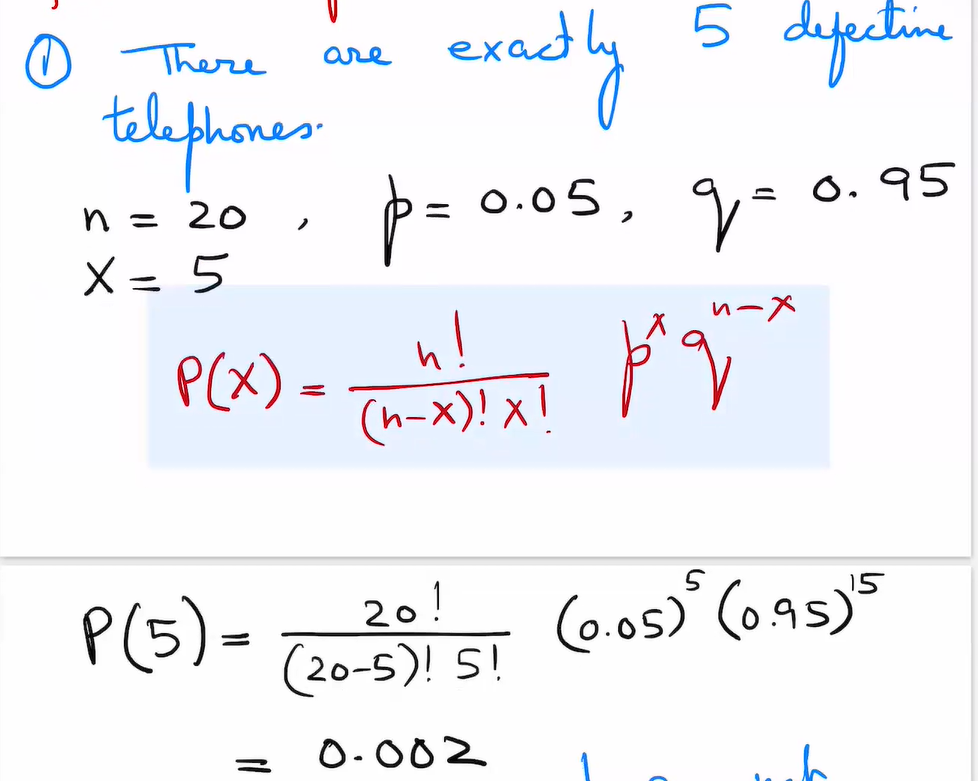 ① There are exactly 5 defective
telephones.
n = 20 , p = 0.05, q = 0.95
X = 5
P(X) = n! / (n-x)! x! p^x q^(n-x)
P(5) = 20! / (20-5)! 5! (0.05)^5 (0.95)^15
= 0.002